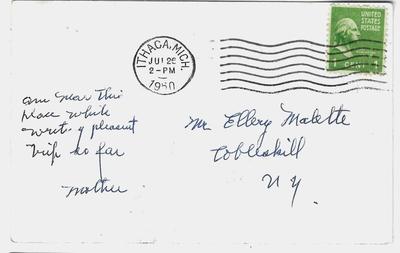 ITHACA, MICH.
JUL 26
2-PM
1950
UNITED STATES
POSTAGE
1 CENT 1
am near this
place while
writing pleasant
trip so far
Mother
Mr Ellery Malette
Cobleskill
N Y.